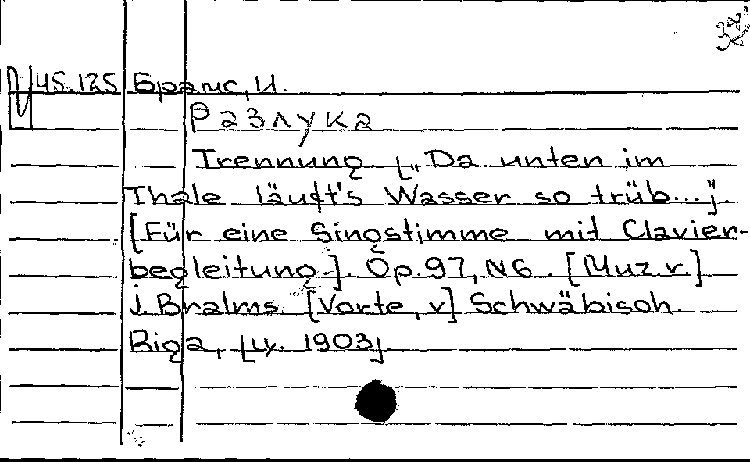 45.125 Брамс, И.
Разлука
Trennung ["Da unten im
Thale läuft's Wasser so trüb..."].
[Für eine Singstimme mit Clavier-
begleitung]. Op. 97, N6. [Muz v.]
J. Brahms. [Vorte, v] Schwäbisch.
Riga, [ц. 1903].